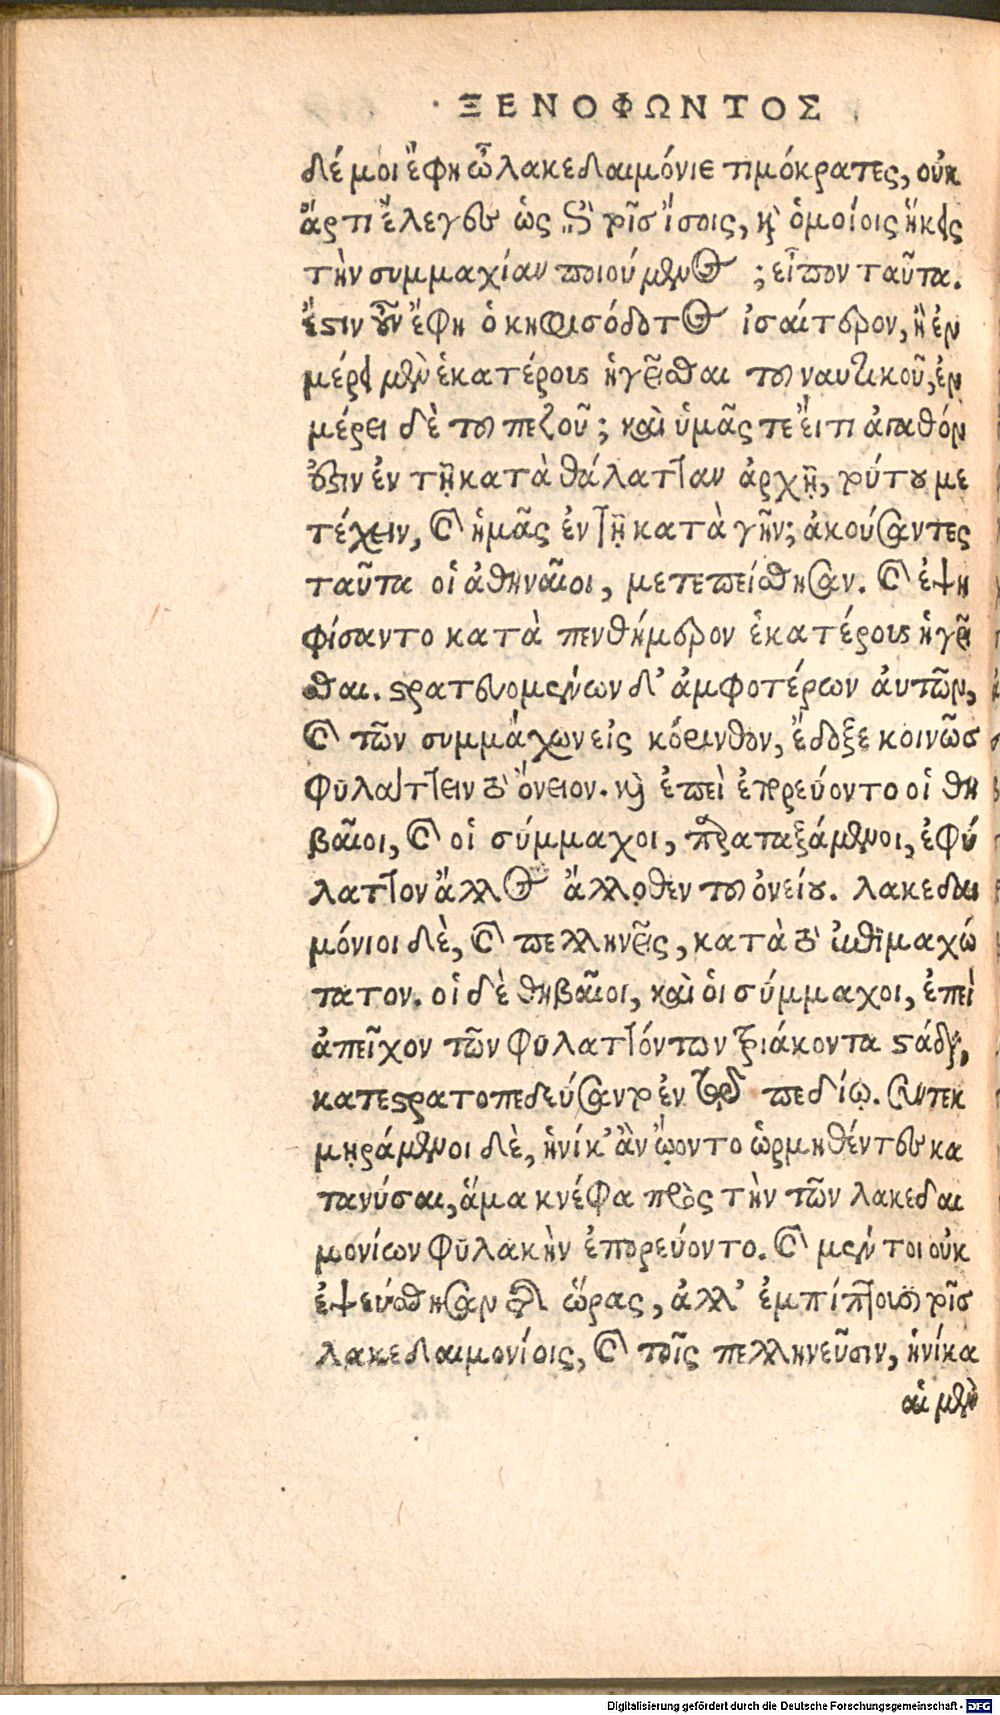 ΞΕΝΟΦΩΝΤΟΣ
δέ μοι ἔφη ὦ λακεδαιμόνιε τιμόκρατες, οὐκ
ἄρτι ἔλεγες ὡς ἐπὶ τοῖς ἴσοις, καὶ ὁμοίοις ἥκεις
τὴν συμμαχίαν ποιούμενος; εἶπον ταῦτα.
ἔστιν οὖν ἔφη ὁ κηφισόδοτος ἰσαίτερον, ἢ ἐν
μέρει μὲν ἑκατέρους ἡγεῖσθαι τοῦ ναυτικοῦ, ἐν
μέρει δὲ τοῦ πεζοῦ; καὶ ὑμᾶς τε εἴ τι ἀγαθόν
ἐστιν ἐν τῇ κατὰ θάλατταν ἀρχῇ, τούτου με
τέχειν, καὶ ἡμᾶς ἐν τῇ κατὰ γῆν; ἀκούσαντες
ταῦτα οἱ ἀθηναῖοι, μετεπείσθησαν. καὶ ἐψη
φίσαντο κατὰ πενθήμερον ἑκατέρους ἡγεῖ
σθαι. στρατευομένων δ' ἀμφοτέρων αὐτῶν,
καὶ τῶν συμμάχων εἰς κόρινθον, ἔδοξε κοινῶς
φυλάττειν τὸ ὄνειον. καὶ ἐπεὶ ἐπορεύοντο οἱ θη
βαῖοι, καὶ οἱ σύμμαχοι, παραταξάμενοι, ἐφύ
λαττον ἄλλος ἄλλοθεν τοῦ ὀνείου. λακεδαι
μόνιοι δὲ, καὶ πελληνεῖς, κατὰ τὸ ἐπιμαχώ
τατον. οἱ δὲ θηβαῖοι, καὶ οἱ σύμμαχοι, ἐπεὶ
ἀπεῖχον τῶν φυλαττόντων τριάκοντα στάδια,
κατεστρατοπεδεύσαντο ἐν τῷ πεδίῳ. συντεκ
μηράμενοι δὲ, ἡνίκ' ἂν ᾤοντο ὁρμηθέντες κα
τανύσαι, ἅμα κνέφα πρὸς τὴν τῶν λακεδαι
μονίων φυλακὴν ἐπορεύοντο. καὶ μέν τοι οὐκ
ἐψεύσθησαν τῆς ὥρας, ἀλλ' ἐμπίπτουσι τοῖς
λακεδαιμονίοις, καὶ τοῖς πελληνεῦσιν, ἡνίκα
αἱ μὲν
Digitalisierung gefördert durch die Deutsche Forschungsgemeinschaft - DFG